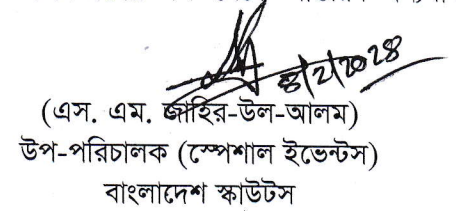 ৪/2/2024
(এস. এম. জাহির-উল-আলম)
উপ-পরিচালক (স্পেশাল ইভেন্টস)
বাংলাদেশ স্কাউটস